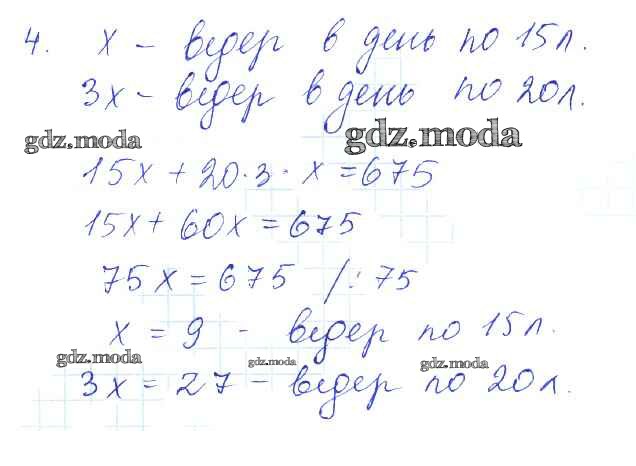 4. х – ведер в день по 15л.
3х – ведер в день по 20л.
gdz.moda gdz.moda
15х + 20·3· х = 675
15х + 60х = 675
75х = 675 /: 75
х = 9 – ведер по 15л.
gdz.moda gdz.moda gdz.moda
3х = 27 – ведер по 20л.